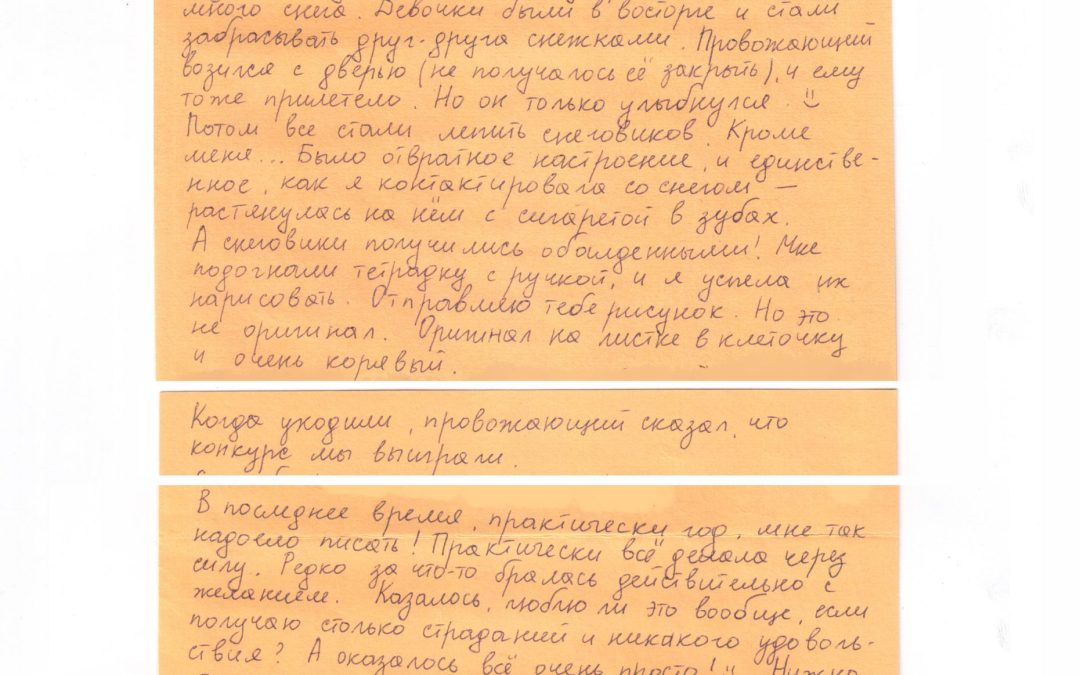 много снега. Девочки были в восторге и стали
забрасывать друг-друга снежками. Провожающий
возился с дверью (не получалось её закрыть), и ему
тоже прилетело. Но он только улыбнулся.
Потом все стали лепить снеговиков. Кроме
меня... Было отвратное настроение, и единстве-
нное, как я контактировала со снегом —
растянулась на нём с сигаретой в зубах.
А снеговики получились обалденными! Мне
подогнали тетрадку с ручкой, и я успела их
нарисовать. Отправляю тебе рисунок. Но это
не оригинал. Оригинал на листке в клеточку
и очень корявый.
Когда уходили, провожающий сказал, что
конкурс мы выиграли.
В последнее время, практически год, мне так
надоело писать! Практически всё делала через
силу. Редко за что-то бралась действительно с
желанием. Казалось, люблю ли это вообще, если
получаю столько страданий и никакого удоволь-
ствия? А оказалось всё очень просто! Нужно